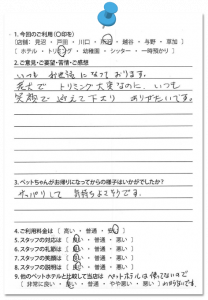 1.今回のご利用(○印を)
[店舗:見沼・戸田・川口・所沢・越谷・与野・草加]
[ホテル・トリミング・幼稚園・シッター・一時預かり]
2.ご意見・ご要望・苦情・ご感想
いつも お世話になっております。
トリミング大変なのに、いつも
笑顔で 迎えて下さり ありがたいです。
3.ペットちゃんがお帰りになってからの様子はいかがでしたか?
さっぱりして 気持ちよさそうです。
4.ご利用料金は [高い・普通・安い]
5.スタッフの対応は [良い・普通・悪い]
6.スタッフの礼節は [良い・普通・悪い]
7.スタッフの笑顔は [良い・普通・悪い]
8.スタッフの説明は [良い・普通・悪い]
9.他のペットホテルと比較して当店は ペットホテルは使ってないので
[非常に良い・良い・普通・やや悪い・悪い] わからないです。